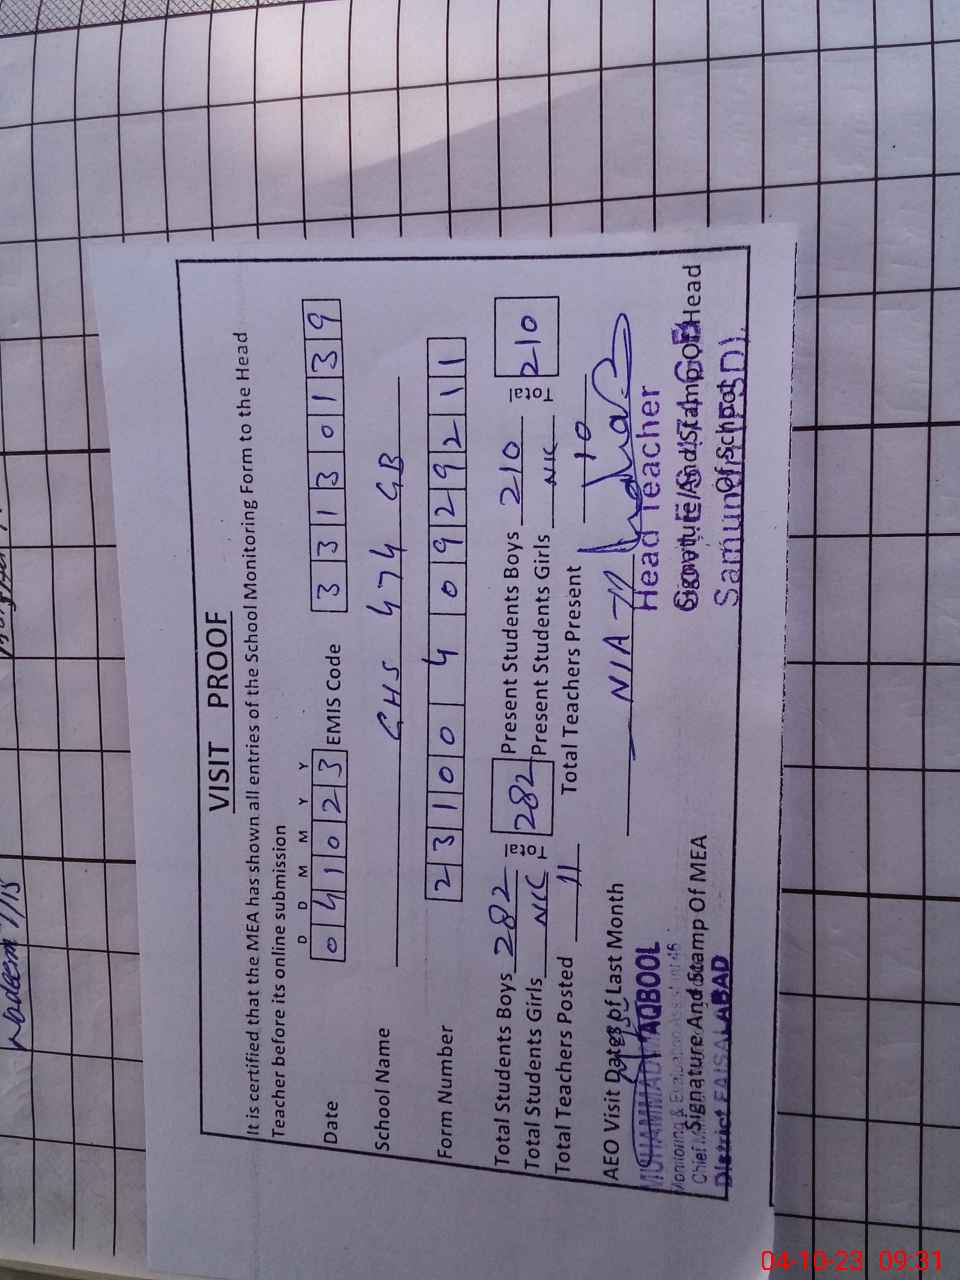 Nadeem
VISIT PROOF
It is certified that the MEA has shown all entries of the School Monitoring Form to the Head
Teacher before its online submission
D D M M Y Y
Date 0 4 1 0 2 3 EMIS Code 3 3 1 3 0 1 3 9
School Name GHS 474 GB
Form Number 2 3 1 0 0 4 0 9 2 9 2 1 1
Total Students Boys 282 Total 282 Present Students Boys 210 Total 210
Total Students Girls NIL Present Students Girls NIL
Total Teachers Posted 11 Total Teachers Present 10
AEO Visit Dates of Last Month NIA
MUHAMMAD MAQBOOL Head Teacher
Monitoring & Evaluation Assistant 46
Signature And Stamp Of MEA Signature And Stamp Of Head
Of School
District FAISALABAD Samundri (FSD)
04-10-23 09:31